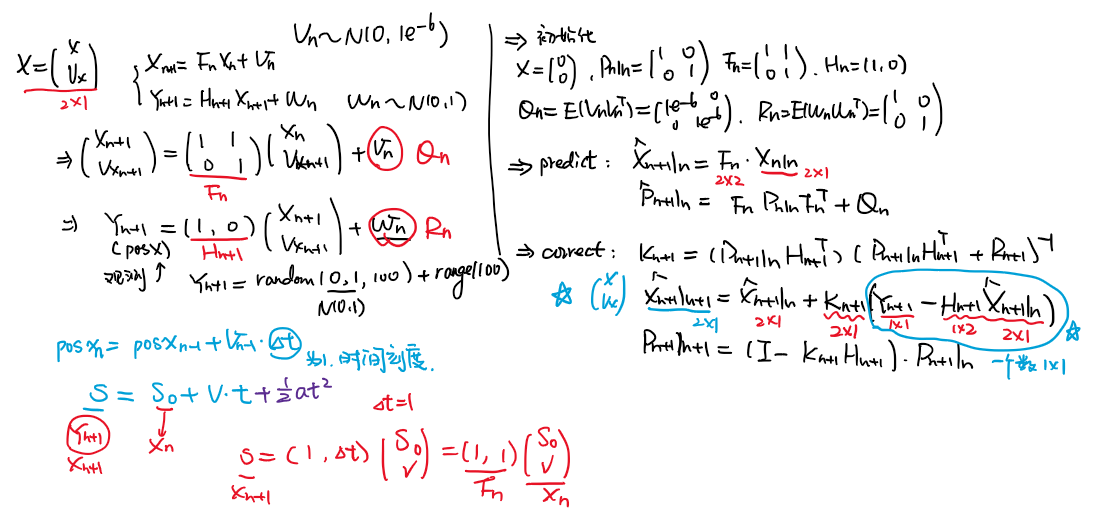 V_n ~ N(0, 1e^{-6})
X = (x V_x) 2×1
{ X_{n+1} = F_n X_n + V_n
Y_{n+1} = H_{n+1} X_{n+1} + W_n W_n ~ N(0,1)
⇒ (X_{n+1} V_{x_{n+1}}) = (1 1 0 1) (X_n V_{x_{n+1}}) + V_n Q_n
F_n
⇒ Y_{n+1} = (1, 0) (X_{n+1} V_{x_{n+1}}) + W_n R_n
(pos x) H_{n+1}
观测 ↑ Y_{n+1} = random(0, 1, 100) + range(100)
N(0,1)
pos x_n = pos x_{n-1} + V_{n-1} · Δt 为1. 时间刻度.
S = S_0 + V·t + 1/2 at^2
Y_{n+1} X_n
X_{n+1}
Δt=1
S = (1, Δt) (S_0 V) = (1, 1) (S_0 V)
X_{n+1} F_n X_n
⇒ 初始化
X = (0 0), P_{n|n} = (1 0 0 1) F_n = (1 1 0 1). H_n = (1, 0)
Q_n = E(V_n V_n^T) = (1e^{-6} 0 0 1e^{-6}). R_n = E(W_n W_n^T) = (1 0 0 1)
⇒ predict: X̂_{n+1|n} = F_n · X_{n|n}
2×2 2×1
P̂_{n+1|n} = F_n P_{n|n} F_n^T + Q_n
⇒ correct: K_{n+1} = (P_{n+1|n} H_{n+1}^T) (P_{n+1|n} H_{n+1}^T + R_{n+1})^{-1}
☆ (x V_x) X̂_{n+1|n+1} = X̂_{n+1|n} + K_{n+1} (Y_{n+1} − H_{n+1} X̂_{n+1|n}) ☆
2×1 2×1 2×1 1×1 1×2 2×1
P_{n+1|n+1} = (I − K_{n+1} H_{n+1}) · P_{n+1|n} 一个数 1×1